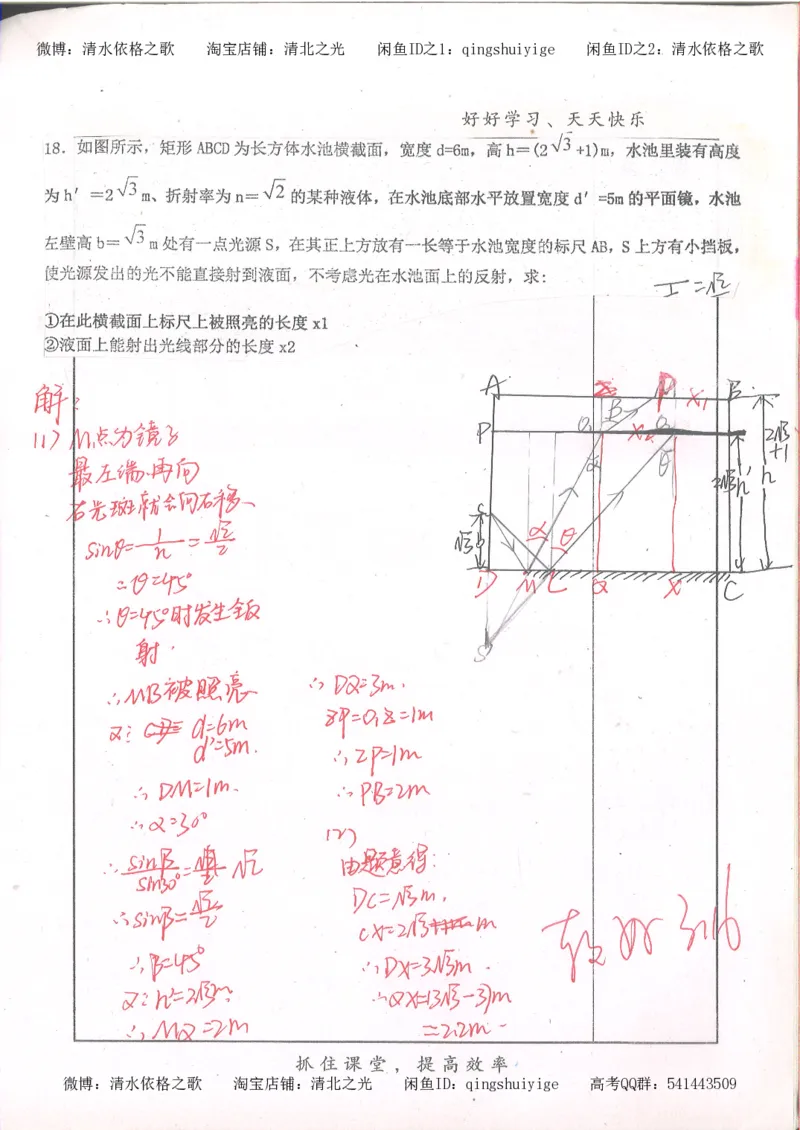 微博：清水依格之歌 淘宝店铺：清北之光 闲鱼ID之1：qingshuiyige 闲鱼ID之2：清水依格之歌
好好学习、天天快乐
18．如图所示，矩形 ABCD 为长方体水池横截面，宽度 d=6m，高 h=(2√3+1)m，水池里装有高度
为 h′=2√3 m、折射率为 n=√2 的某种液体，在水池底部水平放置宽度 d′=5m 的平面镜，水池
左壁高 b=√3 m 处有一点光源 S，在其正上方放有一长等于水池宽度的标尺 AB，S 上方有小挡板，
使光源发出的光不能直接射到液面，不考虑光在水池面上的反射，求：
①在此横截面上标尺上被照亮的长度 x1
②液面上能射出光线部分的长度 x2
解：
(1) M点为镜子
最左端.再向
右光斑就会向右移、
sinθ=1/n=√2/2
∴θ=45°
∴θ=45°时发生全反
射.
∴MB被照亮
又∵ d=6m
d′=5m.
∴DM=1m.
∴α=30°
∴sinβ/sin30°=√2
∴sinβ=√2/2
∴β=45°
又∵h′=2√3m.
∴MQ=2m
∴DQ=3m.
ZP=O₁Z=1m
∴ZP=1m
∴PB=2m
(2)
由题意得：
DC=√3m.
CX=2√3m
∴DX=3√3m.
∴QX=(3√3-3)m
=2.2m
A
P
B
X₁
P
O₁
X₂
β
α
θ
S
√3
b
2√3
h′
h
2√3
+1
D
M
L
Q
X
C
S′
抓住课堂，提高效率
微博：清水依格之歌 淘宝店铺：清北之光 闲鱼ID：qingshuiyige 高考QQ群：541443509